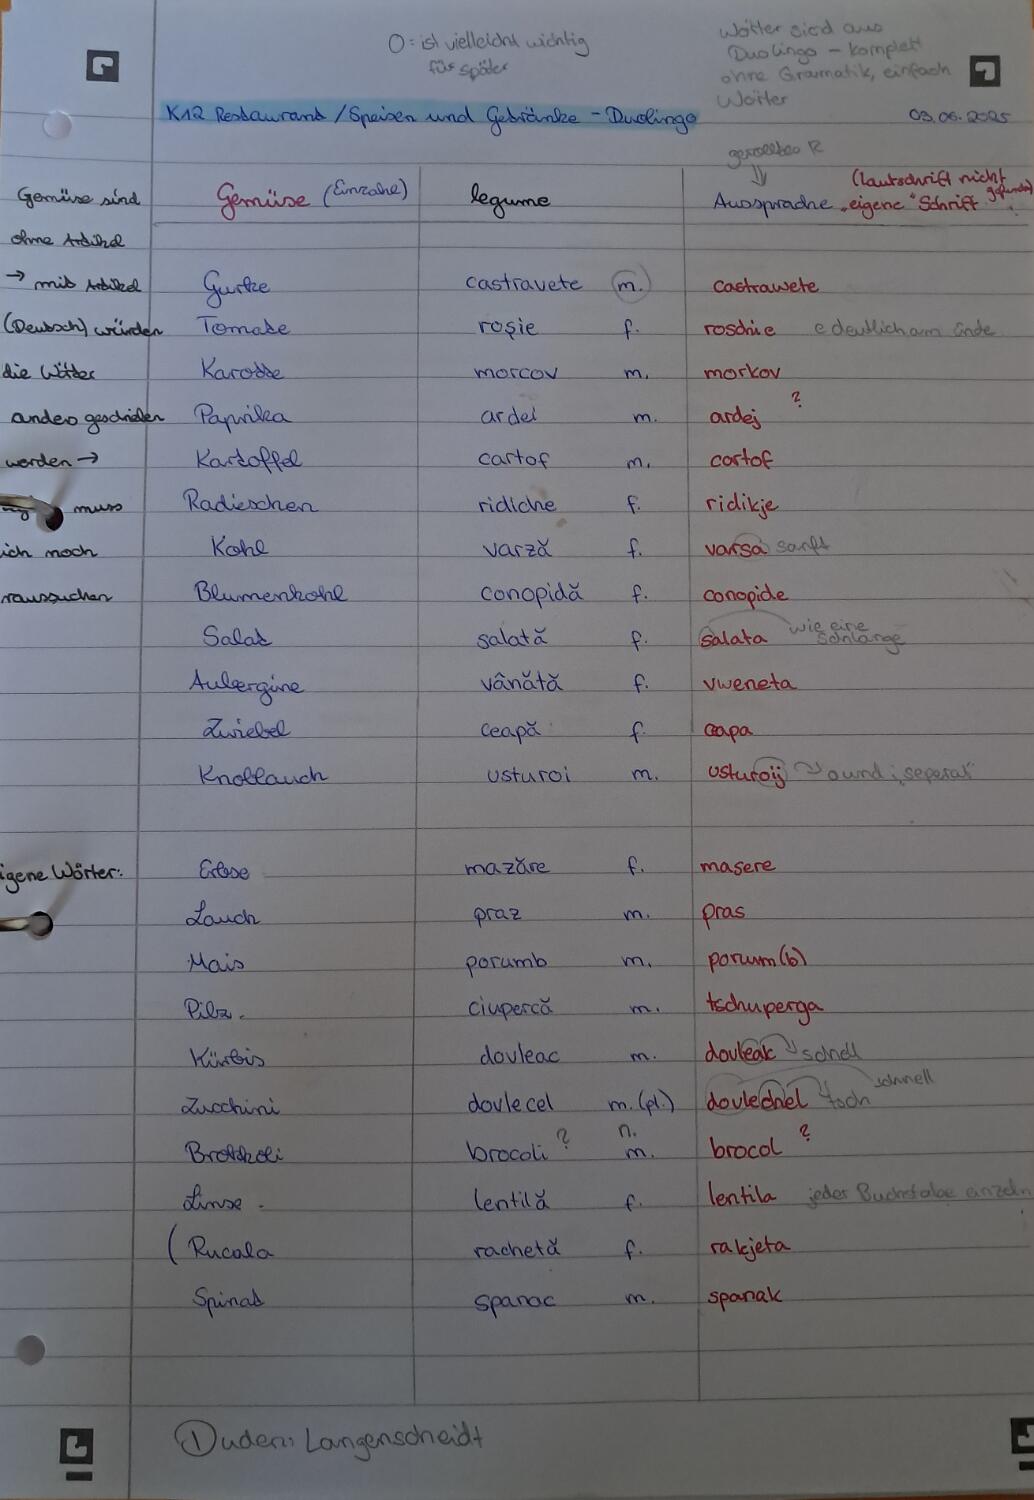 O = ist vielleicht wichtig
für später
Wörter sind aus
Duolingo – komplett
ohne Gramatik, einfach
Wörter
K12 Restaurant / Speisen und Getränke - Duolingo
03.06.2025
gerolltes R
Gemüse (Einzahl) legume Aussprache „eigene" Schrift
(Lautschrift nicht gefunden)
Gemüse sind
ohne Artikel
→ mit Artikel
(Deutsch) würden
die Wörter
anders geschrieben
werden →
muss
ich noch
raussuchen
Gurke castravete m. castrawete
Tomate roşie f. roschie e deutlich am Ende
Karotte morcov m. morkov
Paprika ardei m. ardej ?
Kartoffel cartof m. cartof
Radieschen ridiche f. ridikje
Kohl varză f. varsa sanft
Blumenkohl conopidă f. conopide
Salat salată f. salata wie eine Schlange
Aubergine vânătă f. vweneta
Zwiebel ceapă f. ceapa
Knoblauch usturoi m. usturoij o und i seperat
igene Wörter:
Erbse mazăre f. masere
Lauch praz m. pras
Mais porumb m. porum(b)
Pilz ciupercă m. tschuperga
Kürbis dovleac m. dovleak schnell
Zucchini dovlecel m. (pl.) dovlechel tsch schnell
Brokkoli brocoli ? n. m. brocol ?
Linse lentilă f. lentila jeder Buchstabe einzeln
(Rucala rachetă f. rakjeta
Spinat spanac m. spanak
Duden: Langenscheidt